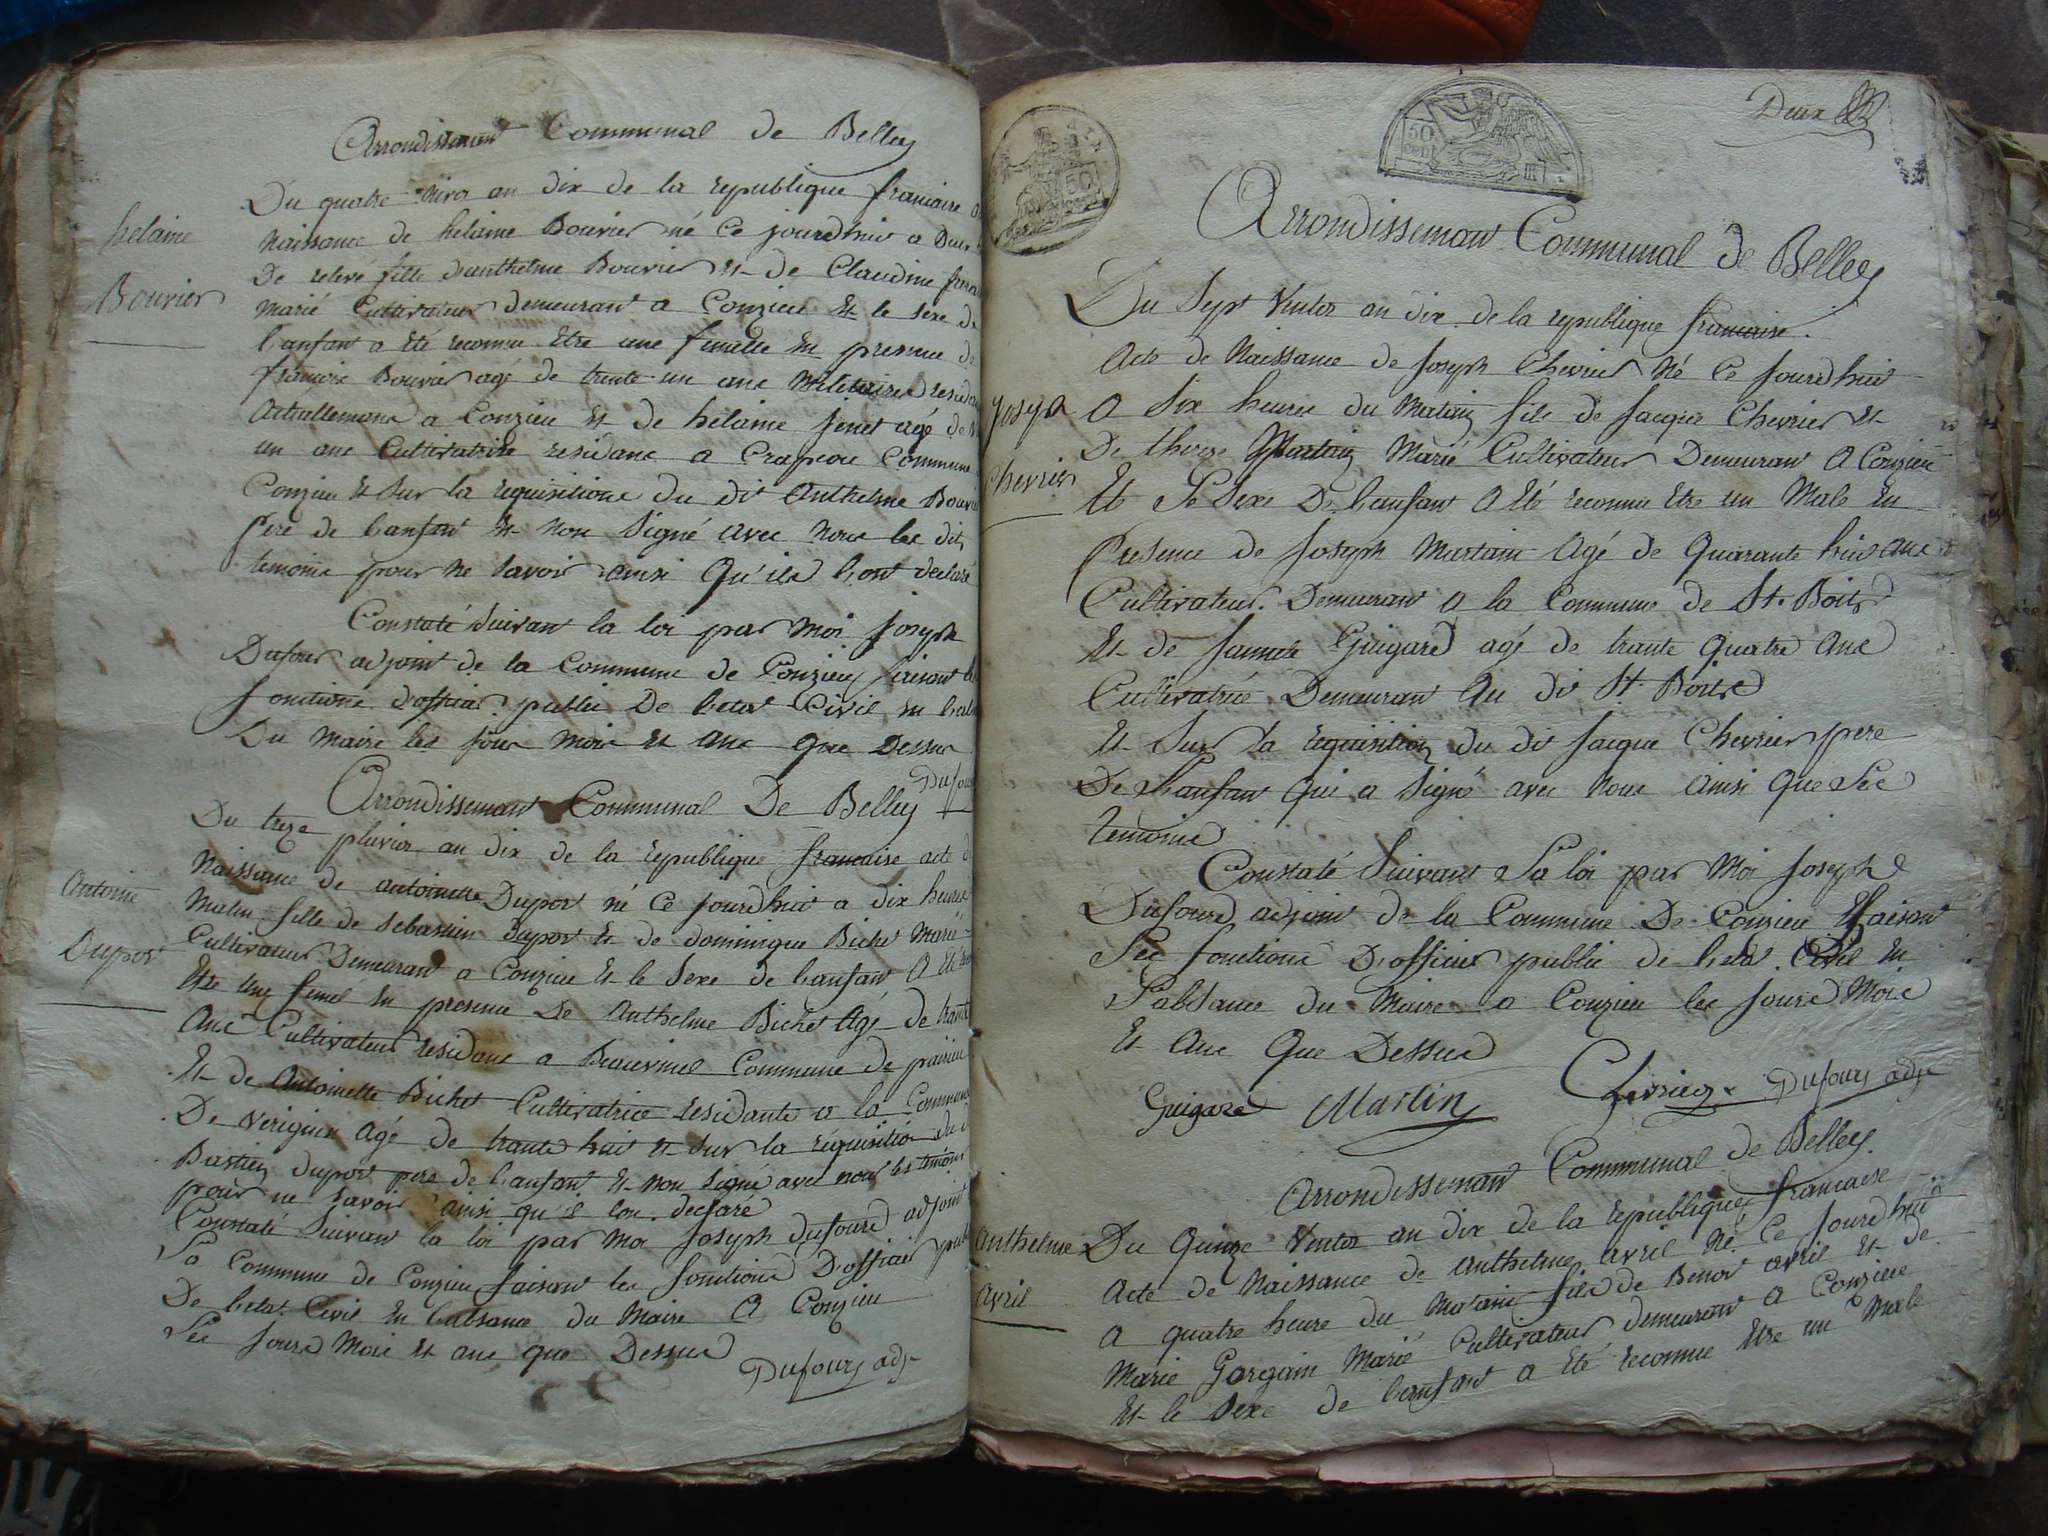 Arrondissement Communal de Belley
Du quatre nivos an dix de la republique francaire
helaine
naissance de helaine Bouvier né Ce jourdhui a Deux
De relevé fille danthelme Bouvier Et de Claudine
Bouvier
marié Cultivateur demeurant a Conzieu Et le sexe de
lanfant a été reconnu Etre une femelle En presence de
francois Bouvier agé de trante un ans Militaire
Actuellement a Conzieu Et de helaine agé de
un ans Cultivatrice residans a Crapeou Commune
Conzieu Et Sur la requisitione du dit Anthelme Bouvier
Pere de lanfant Et non Signé avec nous les dit
temoins pour ne savoir ainsi Qu'ils lont declaré
Constaté Suivant la loi par Moi joseph
Dufour adjoint de la Commune de Conzieu
fonctions d'officier public De letat Civil En
Du Maire les jour mois Et ans que Dessus
Dufour
Arrondissemant Communal De Belley
Du treze pluvios an dix de la republique francaise acte de
Antoine
Naissance de antoinette Dupont né Ce jourdhui a dix heures
Matin fille de sebastien Dupont Et de domingue Bichet Marié
Dupont
Cultivateur Demeurant a Conzieu Et le Sexe de lanfant A Eté
Etre un femel En presence De Anthelme Bichet Agé de trante
Anc Cultivateur residans a Commune de
Et de Antoinette Bichet Cultivatrice residante a la Commune
De Verignin agé de trante huit Et Sur la requisition du
Bastien dupont pere de lanfant Et non signé avec nous les temoins
pour ne savoir ainsi qu'il lon declaré
Constaté Suivant la loi par moi Joseph dufour adjoint
La Commune de Conzieu faisant les fonctions D'officier
De letat Civil En labsance du Maire A Conzieu
Les jours Mois Et ans que Dessus
Dufour adj
50
Deux
50 cent
Arrondissemant Communal de Belley
Du Sept Ventos an dix de la republique francaise.
Acte de Naissance de Joseph Chevrier Né Ce Jourdhui
Joseph
A Six heures du Matain fils de Jacques Chevrier Et
De therese Martain Marié Cultivateur Demeurant A Conzieu
Chevrier
Et Le Sexe De Lanfant A Eté reconnu Etre un Male En
Presence de Joseph Martain Agé de Quarante huit Anc
Cultivateur Demeurant A la Commune de St. Boits
Et de Guigard agé de trante Quatre Anc
Cultivatrice Demeurant Au dit St. Boits
Et Sur la requisition du dit Jacque Chevrier pere
De Lanfant Qui a Signé avec Nous Ainsi Que Sec
temoins
Constaté Suivant La loi par Moi Joseph
Dufourd adjoint de la Commune De Conzieu faisant
Les fonctions D'officier public de letat Civil En
L'absance du Maire a Conzieu les Jours Mois
Et Anc Que Dessus
Guigard Martin Chevrier Dufour adj
Arrondissemant Communal de Belley.
Anthelme
Du Quinze Ventos an dix de la republique francaise
Acte de Naissance de Anthelme avril Né Ce Jourdhui
Avril
A quatre heure du Matain fils de Benoit avril Et de
Marie Gorgain Marié Cultivateur demeurant a Conzieu
Et le Sexe de lanfant a Eté reconnu Etre un Male